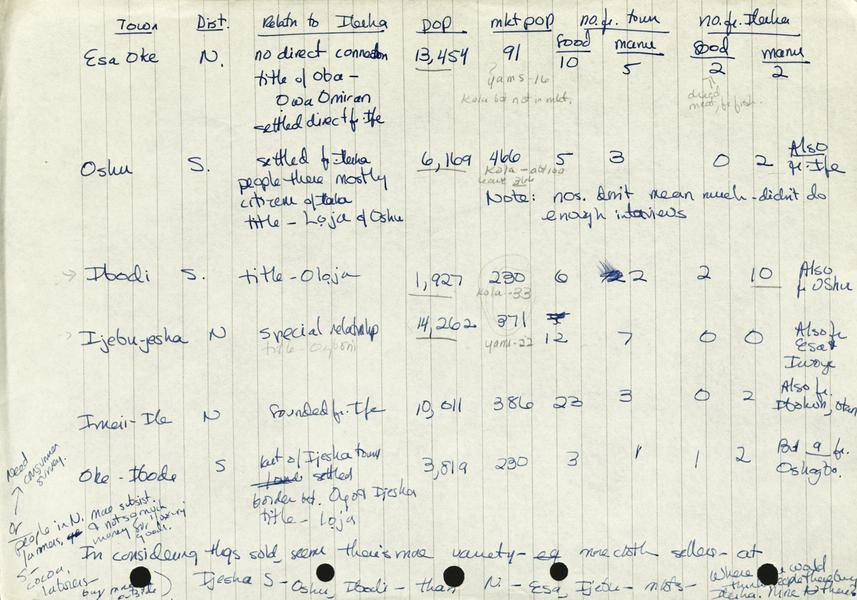 Town Dist. Relatn to Ilesha pop mkt pop no. fr. town no. fr. Ilesha
food manu food manu
Esa Oke N. no direct connection 13,454 91 10 5 2 2
title of Oba - yams-16
Owa Omiran Kola but not in mkt.
settled direct fr. Ife
Oshu S. settled fr. Ilesha 6,169 466 5 3 0 2 Also fr. Ife
people there mostly Kola
citizens of Ilesha Note: nos. don't mean much - didn't do
title - Loja of Oshu enough interviews
Ibodi S. title - Oloja 1,927 230 6 2 2 10 Also fr Oshu
Kola-33
Ijebu-jesha N special relationship 14,262 371 12 7 0 0 Also fr Esa
title - Ogboni yams-22
Imesi-Ile N founded fr. Ife 10,011 386 23 3 0 2 Also fr.
Oke-Ibode S last of Ijesha town 3,819 230 3 1 1 2 But 9 fr. Oshogbo.
settled
border bet. Oyo & Ijesha
title - Loja
Need consumer survey.
or
people in N. more subsist.
farmers, & not so much
money for luxury goods.
S - cocoa
laborers -
buy more
In considering thgs sold, seems there's more variety - eg more cloth sellers - at
Ijesha S - Oshu, Ibodi - than N - Esa, Ijebu - mkts -